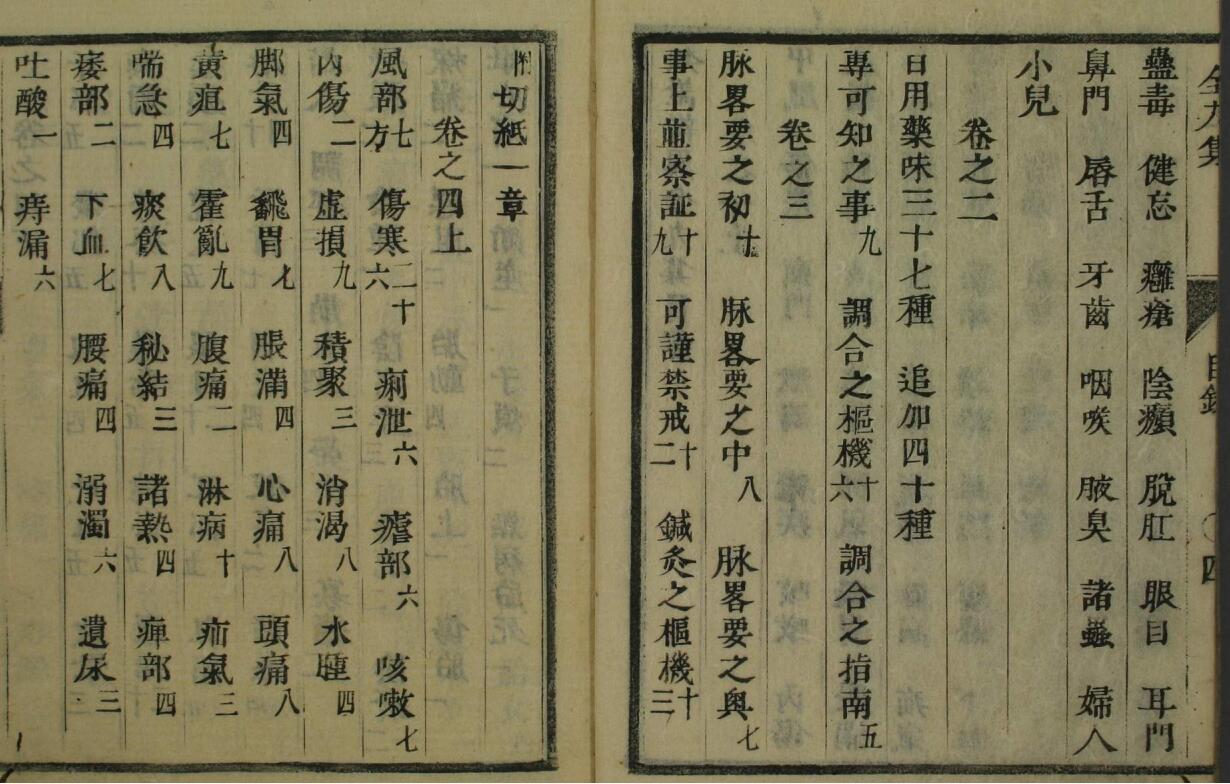 全九集 目錄 四
蠱毒 健忘 癰瘡 陰㿗 脫肛 眼目 耳門
鼻門 唇舌 牙齒 咽喉 腋臭 諸蟲 婦人
小兒
卷之二
日用藥味三十七種 追加四十種
專可知之事九 調合之樞機十六 調合之指南五
卷之三
脉畧要之初十 脉畧要之中八 脉畧要之奧七
事上並察証十九 可謹禁戒十二 鍼灸之樞機十三
附切紙一章
卷之四上
風部七方 傷寒二十六 痢泄六 瘧部六 咳嗽七
內傷二 虛損九 積聚三 消渴八 水腫四
脚氣四 飜胃七 脹滿四 心痛八 頭痛八
黃疸七 霍亂九 腹痛二 淋病十 疝氣三
喘急四 痰飲八 秘結三 諸熱四 痺部四
痿部二 下血七 腰痛四 溺濁六 遺尿三
吐酸一 痔漏六